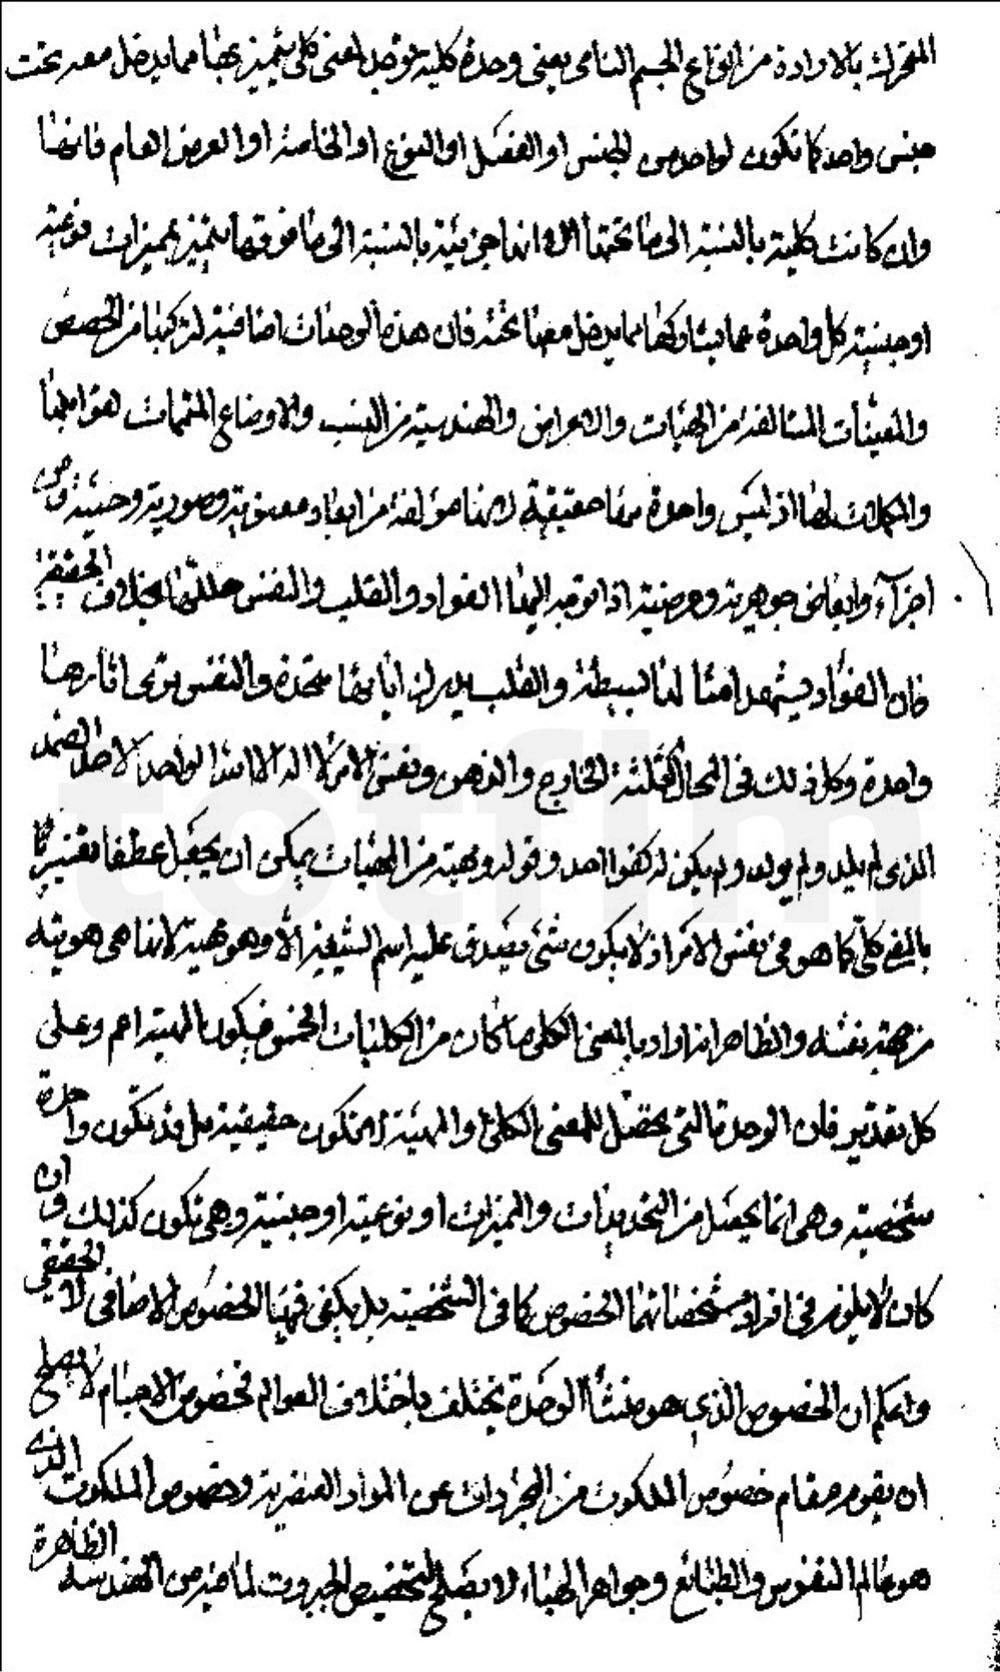 المتحرك بالارادة من انواع الجسم النامى يعنى وحدة كلية توجد لمعنى كلى يتميز بها مما يدخل معه تحت
جنس واحد كما تكون لواحد من الجنس او الفصل او النوع او الخاصة او العرض العام فانها
وان كانت كلية بالنسبة الى ما تحتها الا انها جزئية بالنسبة الى ما فوقها يتميز بمميزات نوعية
او جنسية كل واحدة عما يشاركها مما يدخل معها تحته فان هذه الوحدات اضافية لتركبها من الحصص
والتعينات المتألفة من الهيئات والاعراض والهندسية من النسب والاوضاع المتممات هو املها
والمكملات لها اذ ليس واحدة منها حقيقية لانها مؤلفة من ابعاد معنوية وصورية وحسية ومن
اجزآء وابعاض جوهرية وعرضية اذا توجه اليها الفواد والقلب والنفس حللتها بخلاف الحقيقة
فان الفؤاد يشهد امثالها بسيطة والقلب يدرك اياتها متحدة والنفس ترى اثارها
واحدة وكل ذلك فى المحال الثلثة الخارج والذهن ونفس الامر لا اله الا الله الواحد الاحد الصمد
الذى لم يلد ولم يولد ولم يكن له كفوا احد وقوله ومهية من المهيات يمكن ان يجعل عطفا تفسيريا
بالمعنى كلى كما هو فى نفس الامر اذ لا يكون شئ يصدق عليه اسم الشيئية الا وهو مهية لانها هى هويته
من جهة نفسه والظاهر انه اراد بالمعنى الكلى ما كان من الكليات الخمس فيكون المهية اعم وعلى
كل تقدير فان الوحدة التى تحصل للمعنى الكلى والمهية لا تكون حقيقية بل قد تكون واحدة
شخصية وهى انما يحصل من التحديدات والمميزات او نوعية او جنسية وهى تكون كذلك وان
كان لا يلزم فى افراد مشخصاتها الخصوص كما فى الشخصية بل يكفى فيها الخصوص الاضافى لا الحقيقى
واعلم ان الخصوص الذى هو منشأ الوحدة يختلف باختلاف العوالم فخصوص الاجسام لا يصلح
ان يقوم مقام خصوص الملكوت من المجردات عن المواد العنصرية وخصوص الملكوت الذى
هو عالم النفوس والطبائع وجواهر الهباء لا يصلح لتخصيص الجبروت لما فيه من الهندسة الظاهرة